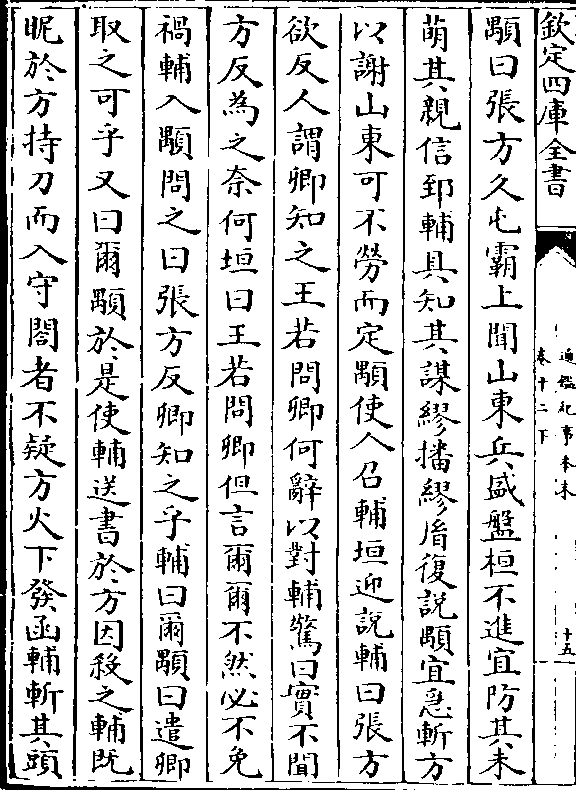 欽定四庫全書
通鑑紀事本末
卷十二下
十五
顒曰張方久屯霸上聞山東兵盛盤桓不進宜防其未
萌其親信郅輔具知其謀繆播繆胤復説顒宜急斬方
以謝山東可不勞而定顒使人召輔垣迎説輔曰張方
欲反人謂卿知之王若問卿何辭以對輔驚曰實不聞
方反為之奈何垣曰王若問卿但言爾爾不然必不免
禍輔入顒問之曰張方反卿知之乎輔曰爾顒曰遣卿
取之可乎又曰爾顒於是使輔送書於方因殺之輔既
昵於方持刀而入守閤者不疑方火下發函輔斬其頭